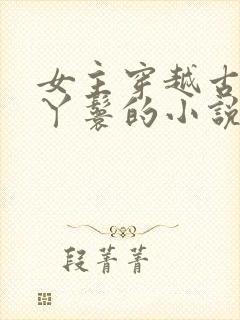 女主穿越古
丫鬟的小說
段菁菁